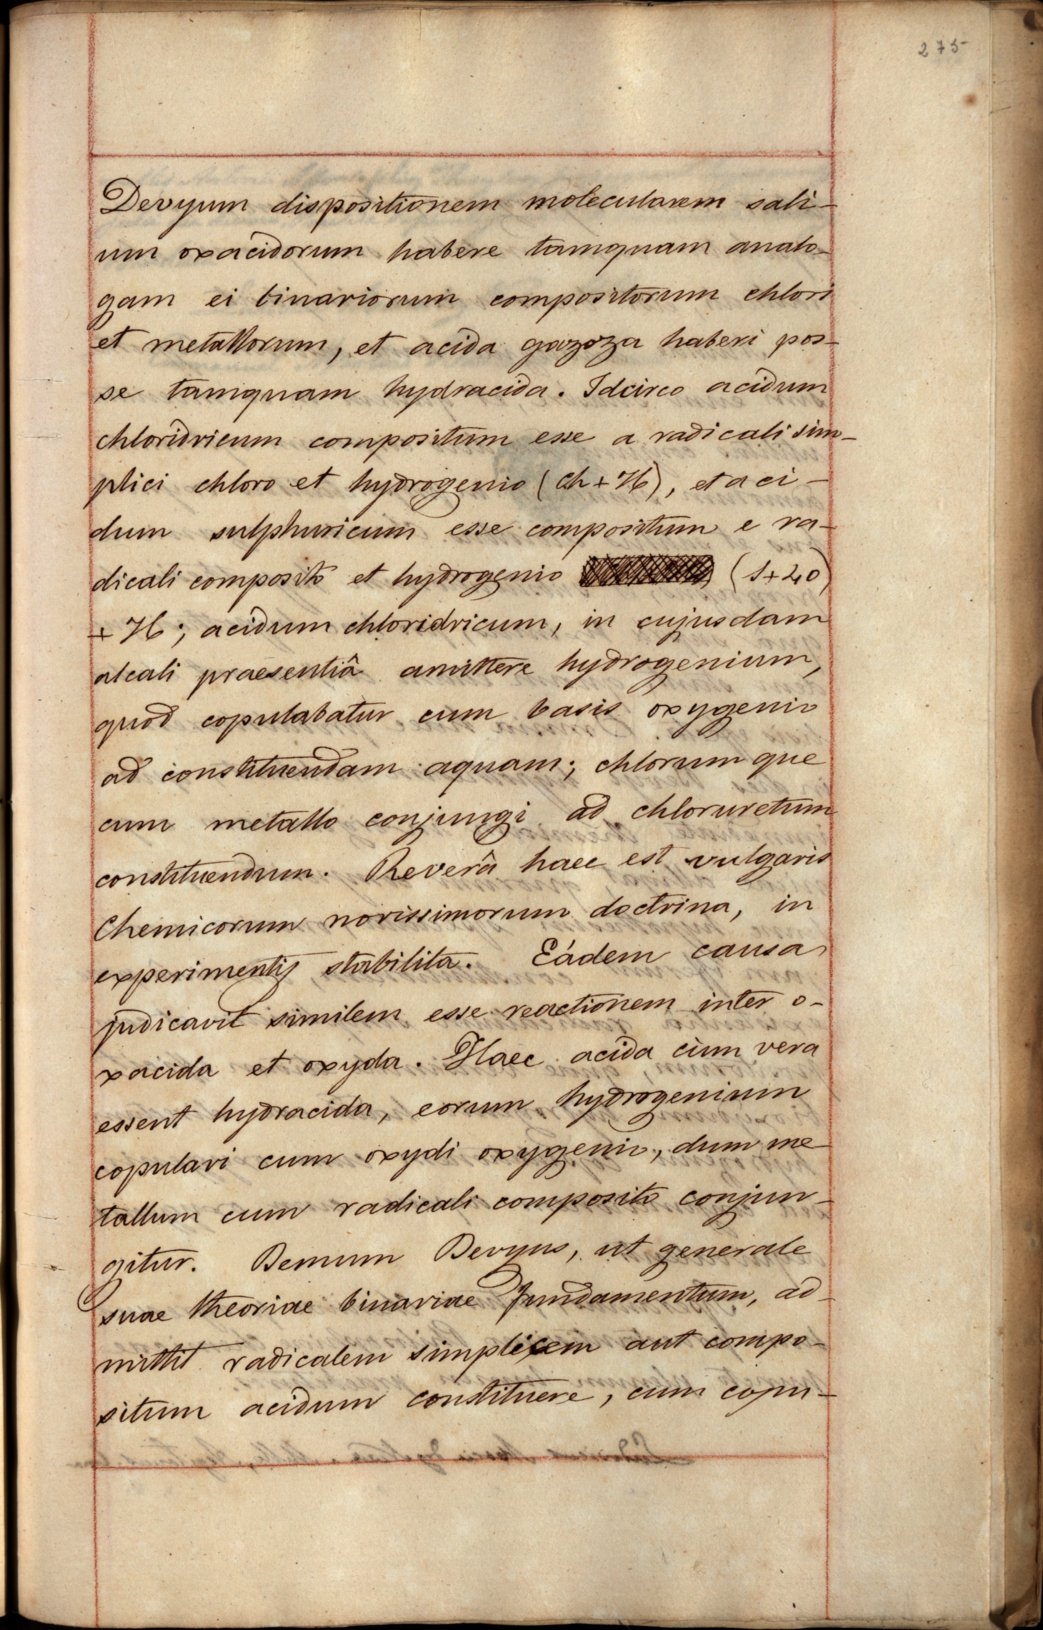 275
Devyum dispositionem molecularem sali-
um oxacidorum habere tamquam analo-
gam ei binariorum compositorum chlori
et metallorum, et acida gazoza haberi pos-
se tamquam hydracida. Idcirco acidum
chloridricum compositum esse a radicali sim-
plici chloro et hydrogenio (Ch+H), et aci-
dum sulphuricum esse compositum e ra-
dicali composito et hydrogenio (S+4O)
+H; acidum chloridricum, in cujusdam
alcali praesentiâ amittere hydrogenium,
quod copulabatur cum basis oxygenio
ad constituendam aquam; chlorumque
cum metallo conjungi ad chloruretum
constituendum. Reverâ haec est vulgaris
Chemicorum novissimorum doctrina, in
experimentis stabilita. Eádem causa
judicavit similem esse reactionem inter o-
xacida et oxyda. Haec acida cùm vera
essent hydracida, eorum hydrogenium
copulari cum oxydi oxygenio, dum me-
tallum cum radicali composito conjun-
gitur. Demum Devyus, ut generale
suae theoriae binariae fundamentum, ad-
mittit radicalem simplicem aut compo-
situm acidum constituere, cum copu-